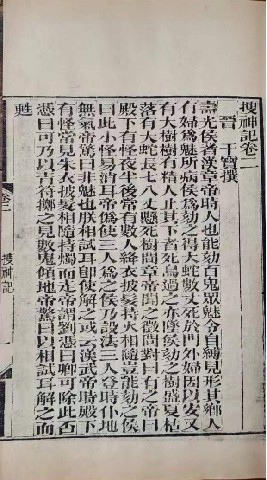 搜神記卷二
晉　干寶撰
壽光侯者漢章帝時人也能劾百鬼眾魅令自縛見形其鄉人
有婦爲魅所病侯爲劾之得大蛇數丈死於門外婦因以安又
有大樹樹有精人止其下者死鳥過之亦墜侯劾之樹盛夏枯
落有大蛇長七八丈懸死樹間章帝聞之徵問對曰有之帝曰
殿下有怪夜半後常有數人絳衣披髮持火相隨豈能劾之侯
曰此小怪易消耳帝僞使三人爲之侯乃設法三人登時仆地
無氣帝驚曰非魅也朕相試耳即使解之或云漢武帝時殿下
有怪常見朱衣披髮相隨持燭而走帝謂劉憑曰卿可除此否
憑曰可乃以青符擲之見數鬼傾地帝驚曰以相試耳解之而
甦
卷二
搜神記